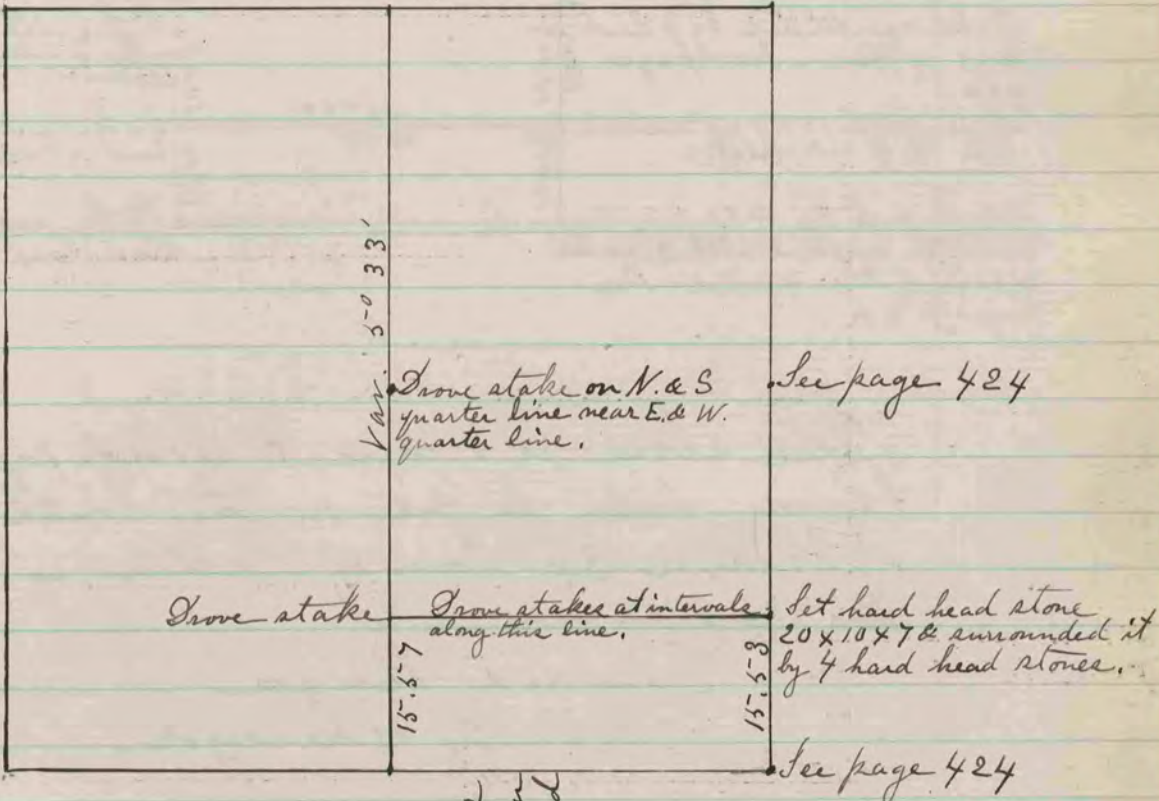 Var. 5° 33'
Drove stake on N. & S
quarter line near E. & W.
quarter line.
See page 424
Drove stake
Drove stakes at intervals
along this line.
Set hard head stone
20 x 10 x 7 & surrounded it
by 4 hard head stones.
15.57
15.53
See page 424